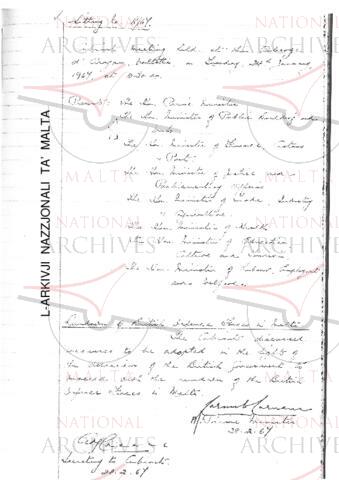 Sitting No 5/67.
Cabinet Meeting held at the Auberge
d'Aragon, Valletta on Tuesday, 24th January
1967 at
Present: The Hon. Prime Minister
The Hon Minister of Public Building and
Works
The Hon Minister of Finance, Customs
& Port
The Hon Minister of Justice and
Parliamentary Affairs
The Hon Minister of Trade, Industry
& Agriculture
The Hon Minister of Health
The Hon Minister of Education,
Culture and Tourism
The Hon Minister of Labour, Employment
and Welfare
Rundown of British Defence Forces in Malta
The Cabinet discussed
measures to be adopted in the light of
the decision of the British Government to
proceed with the rundown of the British
Defence Forces in Malta.
Prime Minister
28.2.67
Secretary to Cabinet
28.2.67
L-ARKIVJI NAZZJONALI TA' MALTA
NATIONAL
ARCHIVES
MALTA